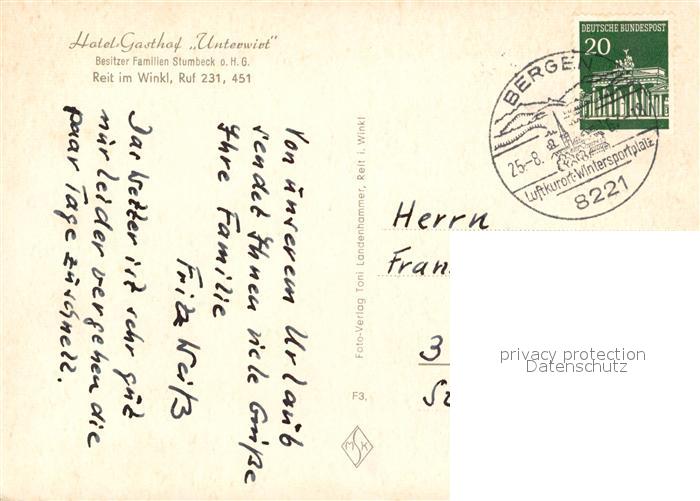 Hotel-Gasthof „Unterwirt"
Besitzer Familien Stumbeck o.H.G.
Reit im Winkl, Ruf 231, 451
Von unserem Urlaub
sendet Ihnen viele Grüße
Ihre Familie
Fritz Weiß
Das Wetter ist sehr gut
nur leider vergehen die
paar Tage zu schnell.
Foto-Verlag Toni Landenhammer, Reit i. Winkl
F3,
MSK
DEUTSCHE BUNDESPOST
20
BERGEN
25.-8.
Luftkurort-Wintersportplatz
8221
Herrn
Fran
3
privacy protection
Datenschutz